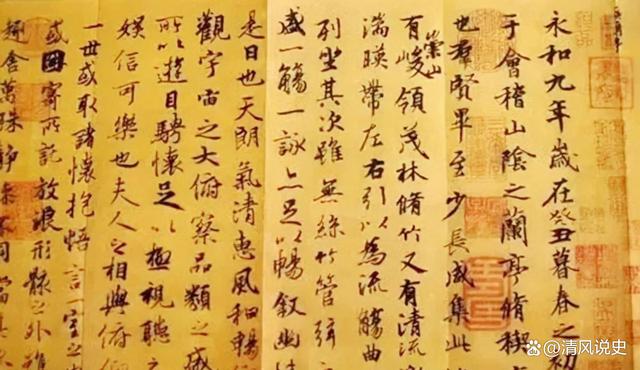 永和九年歲在癸丑暮春之初
于會稽山陰之蘭亭脩禊
也羣賢畢至少長咸集此
有崇山峻領茂林脩竹又有清流
湍暎帶左右引以為流觴曲
列坐其次雖無絲竹管弦
盛一觴一詠亦足以暢敘幽情
是日也天朗氣清惠風和暢
觀宇宙之大俯察品類之盛
所以遊目騁懷足以極視聽之
娛信可樂也夫人之相與俯仰
一世或取諸懷抱悟言一室之
或因寄所託放浪形骸之外雖
趣舍萬殊靜躁不同當其
@清风说史